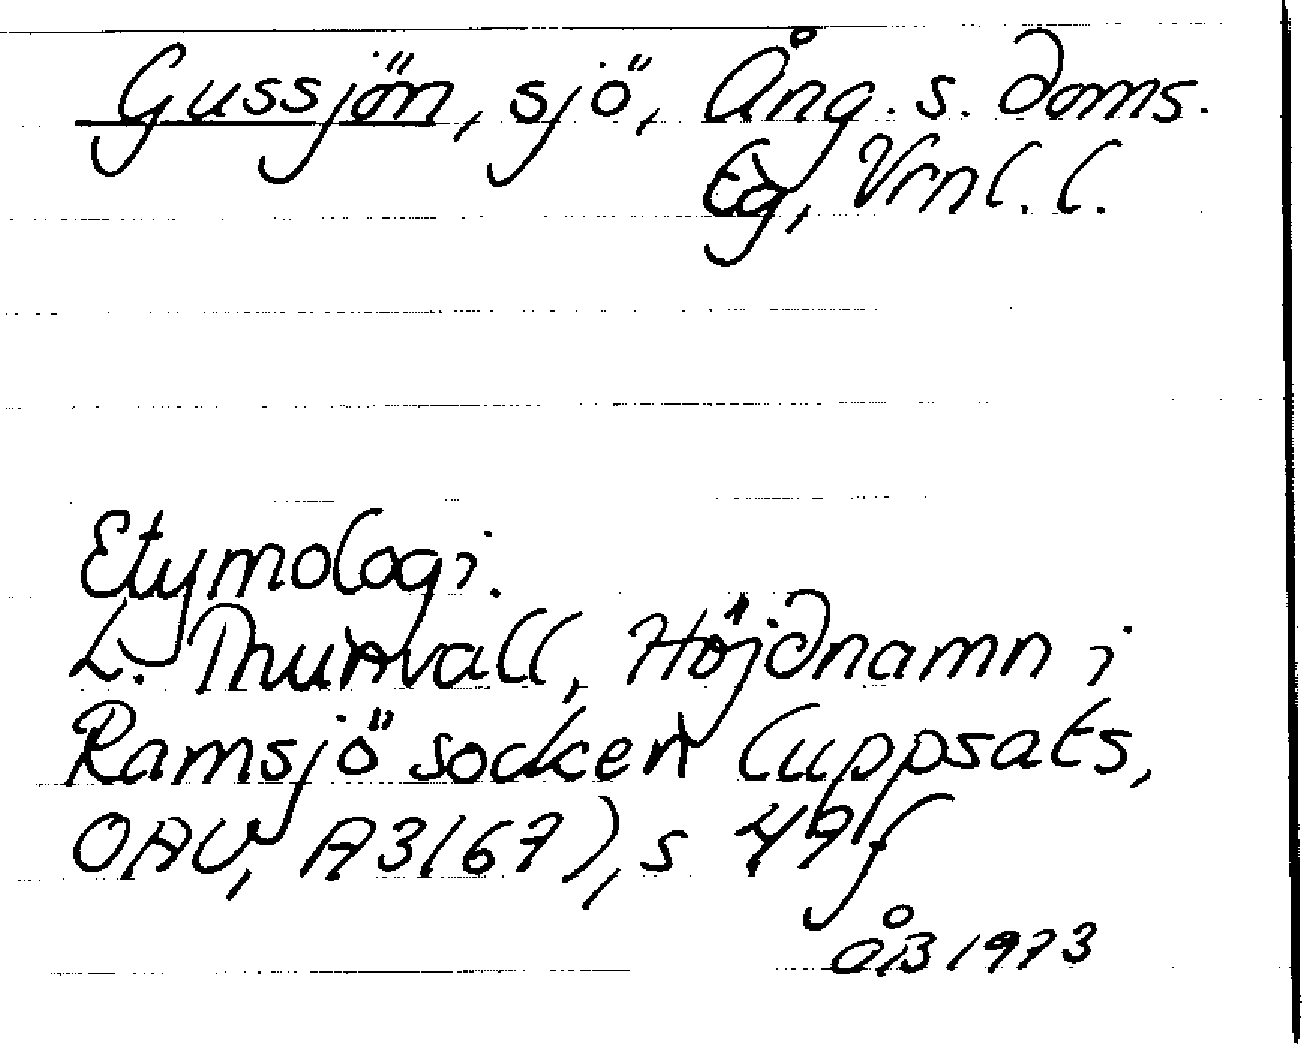 Gussjön, sjö, Ång. s. doms.
Eg, Vrnl. l.
Etymologi.
L. Thunvall, Höjdnamn i
Ramsjö socken (uppsats,
OAU, A3167), s 49f
ÅB 1973